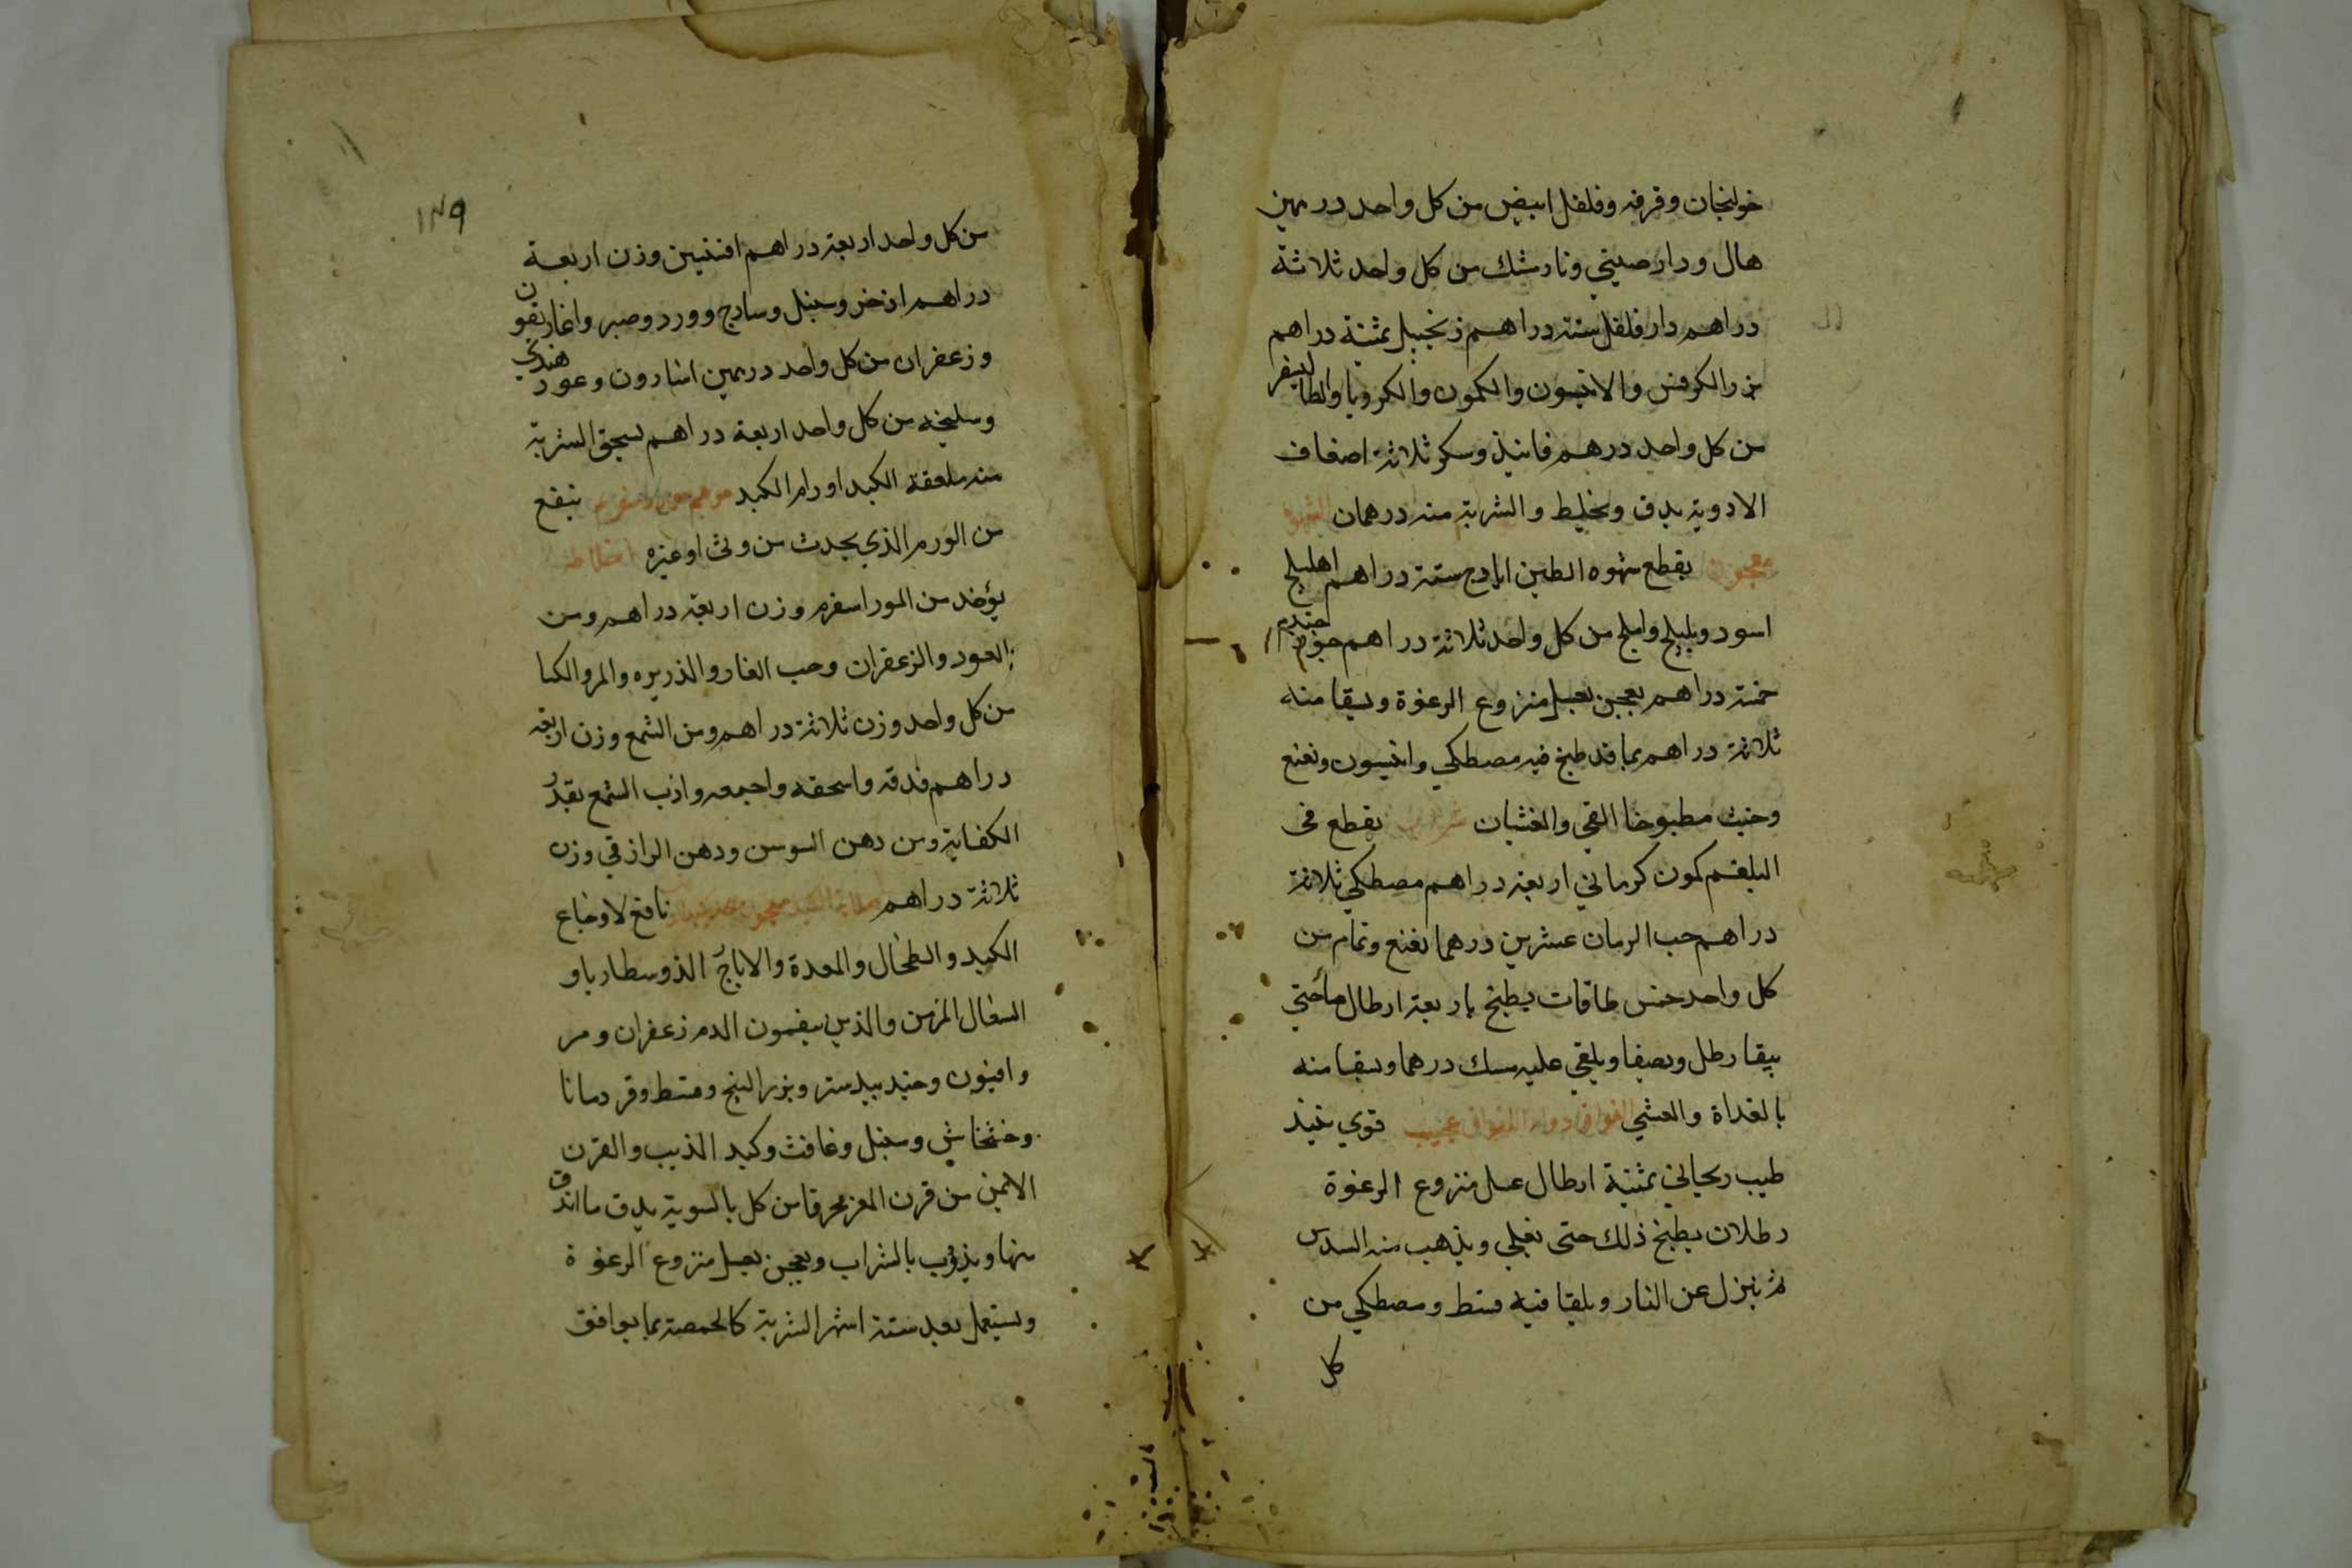 خولنجان وقرفه وفلفل ابيض من كل واحد درهمين
هال ودارصيني ونارمشك من كل واحد ثلاثة
دراهم دار فلفل ستة دراهم زنجبيل ثمنية دراهم
بزر الكرفس والانيسون والكمون والكرويا والطاليسفر
من كل واحد درهم فانيذ وسكر ثلاثة اضعاف
الادوية يدق ويخلط والشربة منه درهمان الشهوة
معجون يقطع شهوه الطين ايارج ستة دراهم اهليلج
اسود وبليلج واملج من كل واحد ثلاثة دراهم جوز جندم
خمسة دراهم يعجن بعسل منزوع الرغوة ويسقا منه
ثلاثة دراهم بما قد طبخ فيه مصطكي وانيسون ونعنع
مطبوخا القي والغثيان شراب يقطع في
البلغم كمون كرماني اربعة دراهم مصطكي ثلاثة
دراهم حب الرمان عشرين درهما نعنع ونمام من
كل واحد خمس طاقات يطبخ باربعة ارطال ما حتي
يبقا رطل ونصفا ويلقي عليه مسك درهما ويسقا منه
بالغداة والعشي الفواق دواء الفواق عجيب قوي نبيذ
طيب ريحاني ثمنية ارطال عسل منزوع الرغوة
رطلان يطبخ ذلك حتى يغلي ويذهب منه السدس
ثم ينزل عن النار ويلقا فيه قسط ومصطكي من
كل
١٣٩
من كل واحد اربعة دراهم افسنتين وزن اربعة
دراهم اذخر وسنبل وسادج وورد وصبر واغاريقون
وزعفران من كل واحد درهمين اسارون وعود هندي
وسليخه من كل واحد اربعة دراهم يسحق الشربة
منه ملعقة الكبد اورام الكبد مرهم ينفع
من الورم الذي يحدث من وثى او غيره اخلاطه
يؤخذ من المور اسفرم وزن اربعة دراهم ومن
العود والزعفران وحب الغار والذريره والمر والكيا
من كل واحد وزن ثلاثة دراهم ومن الشمع وزن اربعة
دراهم فدقه واسحقه واجمعه واذب الشمع بقدر
الكفاية ومن دهن السوسن ودهن الرازقي وزن
ثلاثة دراهم صلابة الكبد معجون نافع لاوجاع
الكبد والطحال والمعدة والذوسنطاريا و
السعال المزمن والذين ينفثون الدم زعفران ومر
وافيون وجندبيدستر وبزر البنج وقسط وقردمانا
وخشخاش وسنبل وغافث وكبد الذيب والقرن
الايمن من قرن المعز محرقا من كل بالسوية يدق ما اندق
منها ويذوب بالشراب ويعجن بعسل منزوع الرغوة
ويستعمل بعد ستة اشهر الشربة كالحمصة بما يوافق